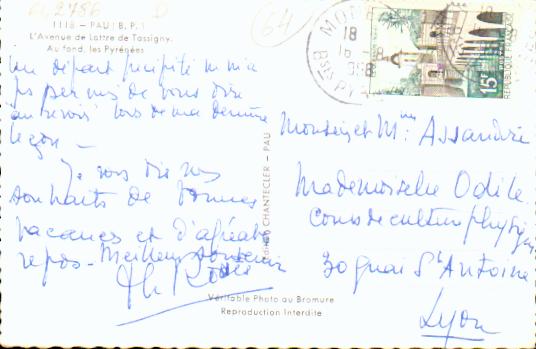 1118 - PAU (B. P.)
L'Avenue de Lattre de Tassigny.
Au fond, les Pyrénées
64
18
15F
REPUBLIQUE FRANÇAISE
Un départ précipité ne m'a
pas permis de vous dire
au revoir lors de ma dernière
leçon -
Je vous dis mes
souhaits de bonnes
vacances et d'agréable
repos - Meilleur souvenir
CHANTECLER - PAU
Véritable Photo au Bromure
Reproduction Interdite
Monsieur et Mme Assandrie
Mademoiselle Odile
Cours de culture physique
30 quai St Antoine
Lyon